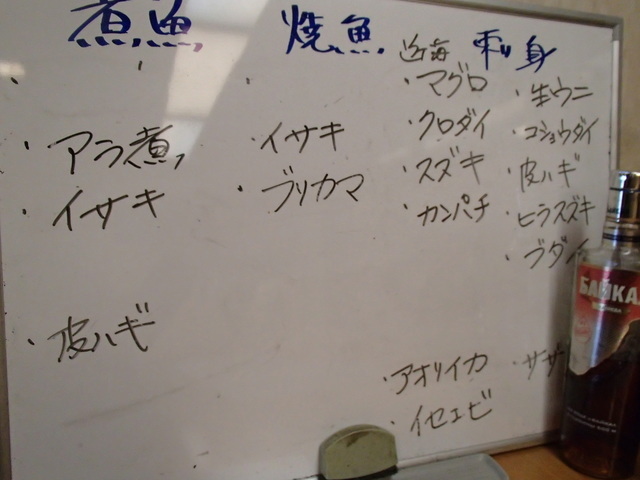 煮魚
・アラ煮
・イサキ
・皮ハギ
焼魚
・イサキ
・ブリカマ
近海 刺身
・マグロ
・クロダイ
・スズキ
・カンパチ
・アオリイカ
・イセエビ
・生ウニ
・コショウダイ
・皮ハギ
・ヒラスズキ
・ブダイ
・サザ
БАЙКА